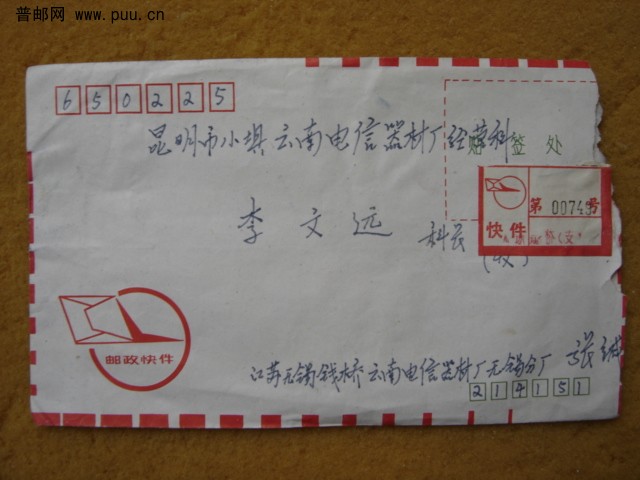 普邮网 www.puu.cn
650225
昆明市小垻云南电信器材厂经营科
签处
第 0074 号
快件
李文远 科长
(收)
邮政快件
江苏无锡钱桥云南电信器材厂无锡分厂 张
214151